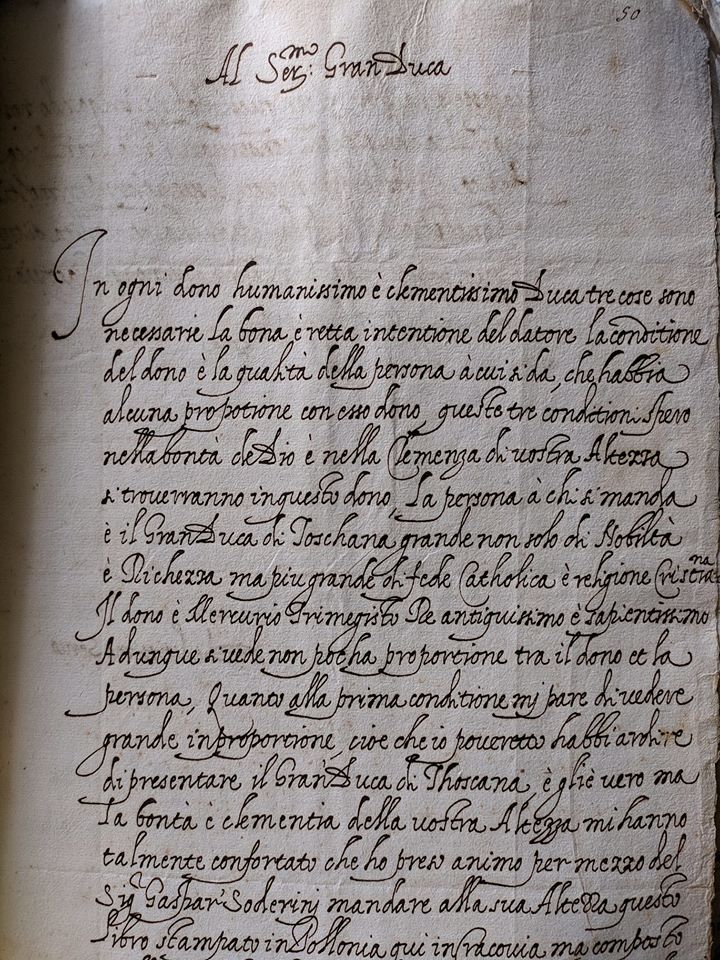 50
Al Ser.mo Gran Duca
In ogni dono humanissimo è clementissimo Duca tre cose sono
necessarie la bona è retta intentione del datore la conditione
del dono è la qualità della persona à cui si da, che habbia
alcuna propotione con esso dono, queste tre condition. spero
nella bontà de Dio è nella Clemenza di vostra Altezza
si troverranno in questo dono, La persona à chi si manda
è il Gran Duca di Toschana grande non solo di Nobiltà
è Richezza ma piu grande di fede Catholica è religione Cristna
Il dono è Mercurio Trimegisto Re antiquissimo è sapientissimo
Adunque si vede non pocha proportione tra il dono et la
persona, Quanto alla prima conditione mj pare di vedere
grande inproportione, cioe che io poveretto habbi ardire
di presentare il Gran Duca di Thoscana, è gliè vero ma
la bontà è clementia della vostra Altezza mi hanno
talmente confortato che ho preso animo per mezzo del
Sigr Gaspar Soderini mandare alla sua Altezza questo
libro stampato in Pollonia qui in Cracovia ma composto